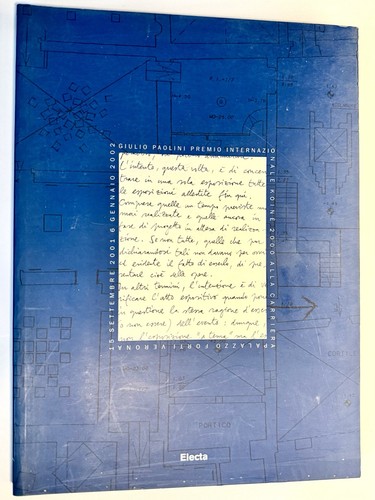 GIULIO PAOLINI PREMIO INTERNAZIO
NALE KOINÈ 2000 ALLA CARRIERA
PALAZZO FORTI VERONA
15 SETTEMBRE 2001 6 GENNAIO 2002
l'intento, questa volta, è di concen
trare in una sola esposizione tutte
le esposizioni allestite fin qui,
comprese quelle un tempo previste ma
mai realizzate e quelle ancora in
fase di progetto in attesa di realizza
zione. Se non tutte, quelle che pre
dichiarandosi tali non davano per ov
vio ed evidente il fatto di esserlo, di pre
sentare cioè delle opere.
In altri termini, l'intenzione è di ve
rificare l'atto espositivo quando pone
in questione la stessa ragione d'esse
o non essere) dell'evento (dunque,
non l'esposizione "a tema" ma l'
PORTICO
PORTI
Electa